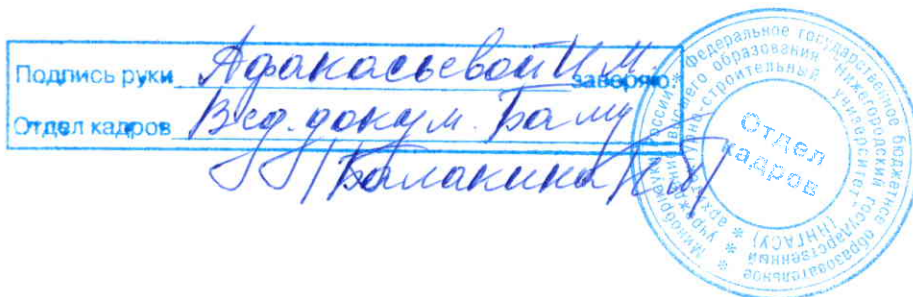 Подпись руки Афанасьевой И.М. заверяю.
Отдел кадров Вед. докум.
Балакина
Отдел
кадров
Минобрнауки России * Федеральное государственное бюджетное образовательное учреждение высшего образования
Нижегородский государственный архитектурно-строительный университет (ННГАСУ)